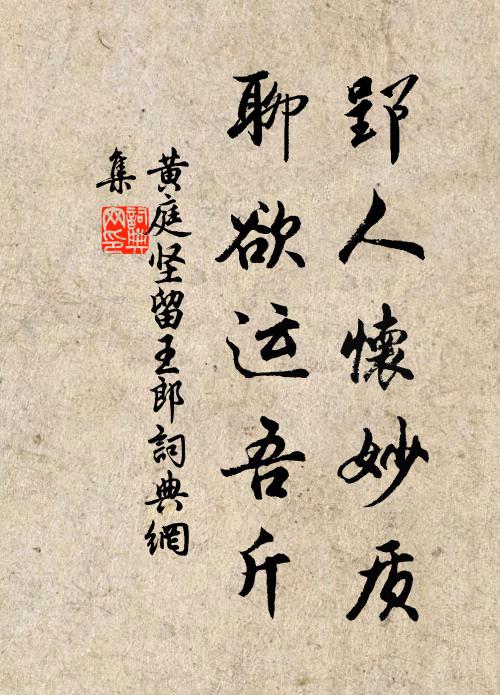 郢人懷妙质
聊欲运吾斤
黄庭坚留王郎詞典網
集
詞典网印